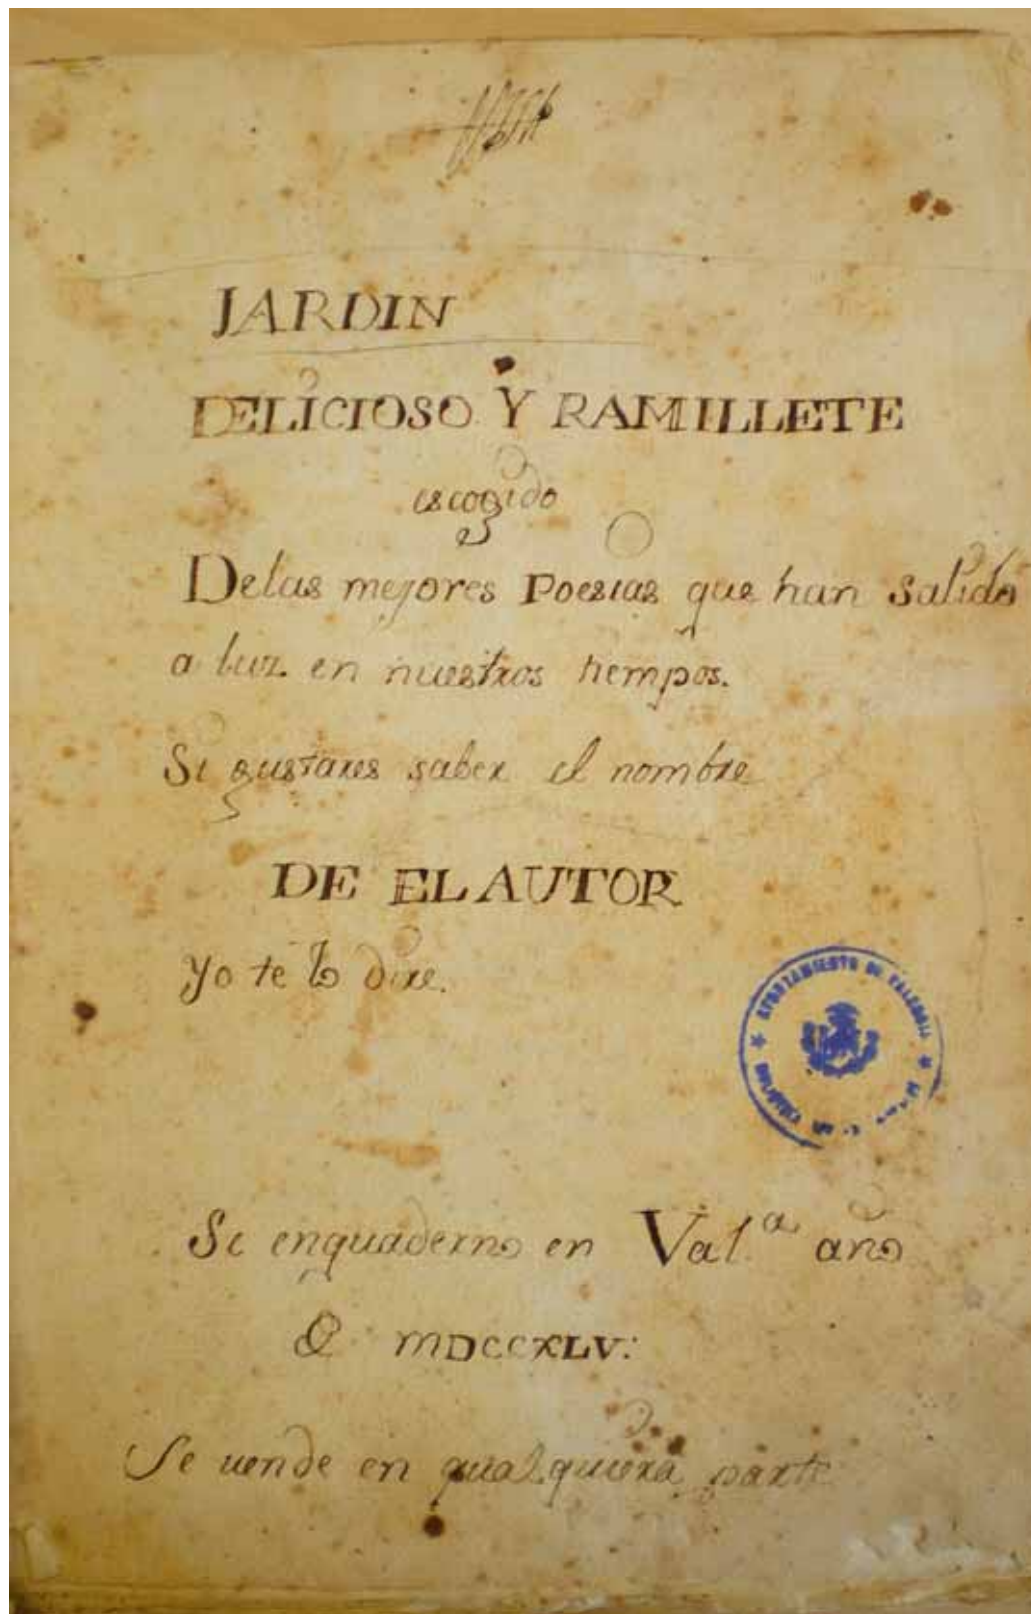 JARDIN
DELICIOSO Y RAMILLETE
escogido
Delas mejores Poesias que han salido
a luz en nuestros tiempos.
Si gustares saber el nombre
DE EL AUTOR
Yo te lo dire.
AYUNTAMIENTO DE VALENCIA
Se enquaderno en Val.ª año
D MDCCXLV:
Se vende en qualquiera parte